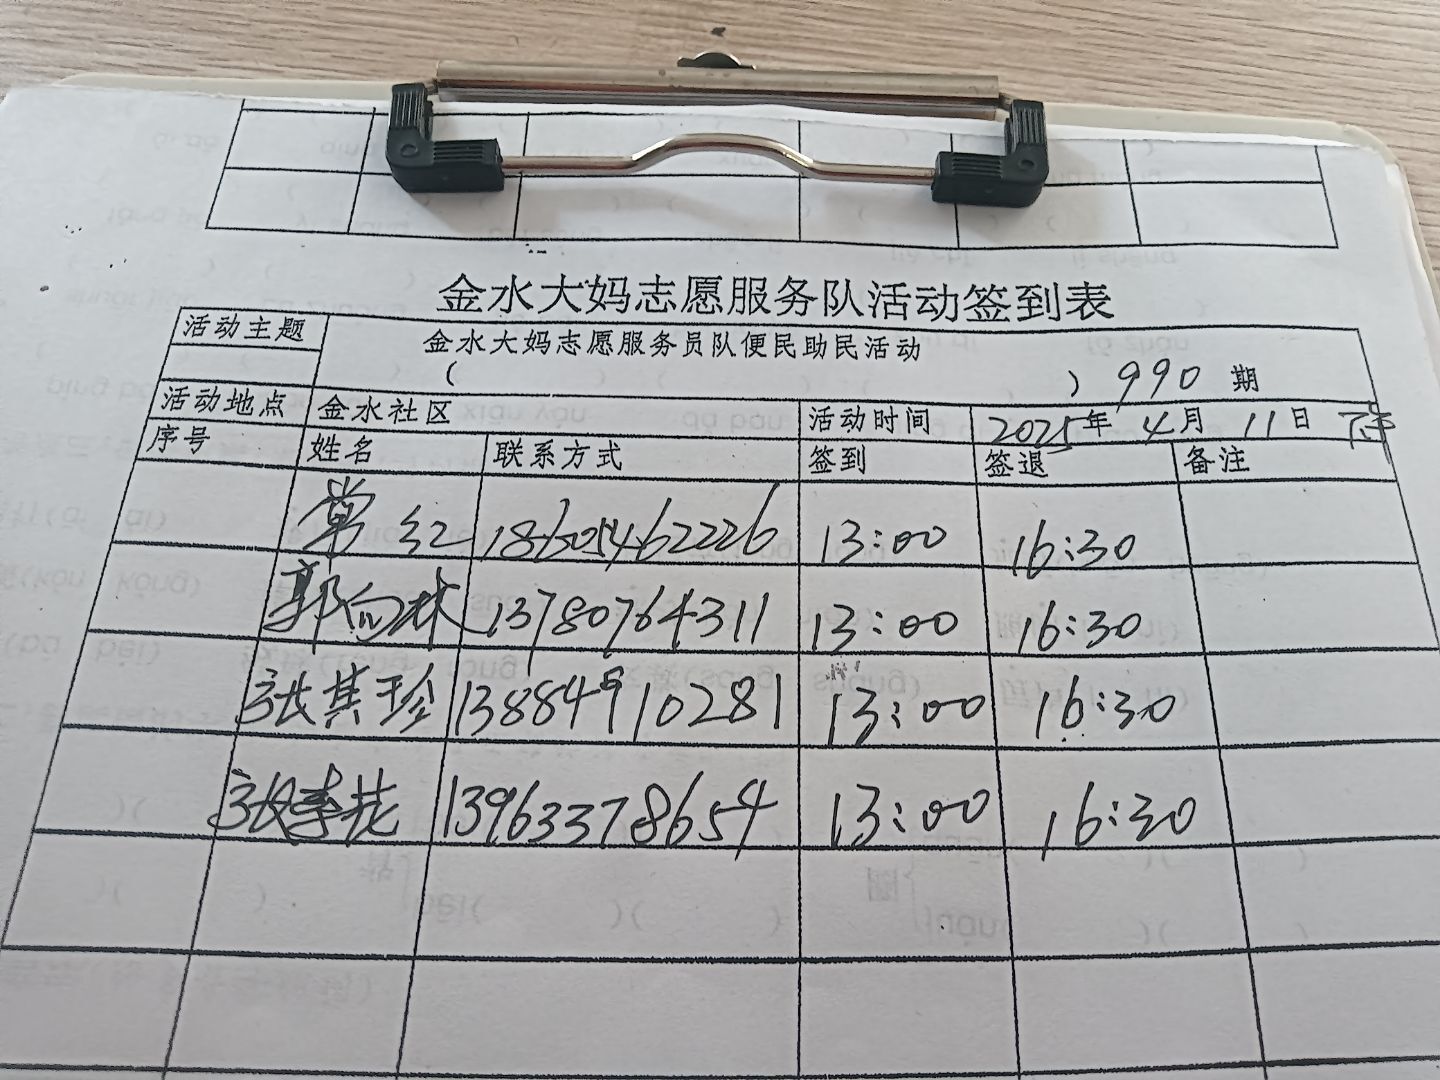 金水大妈志愿服务队活动签到表
活动主题 金水大妈志愿服务员队便民助民活动
( ) 990 期
活动地点 金水社区 活动时间 2025年 4月 11日
序号 姓名 联系方式 签到 签退 备注
常红 18605462226 13:00 16:30
郭向林 13780764311 13:00 16:30
张其珍 13884910281 13:00 16:30
张季花 13963378654 13:00 16:30